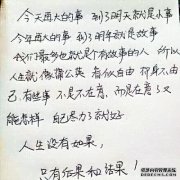 今天再大的事 到了明天就是小事
今年再大的事 到了明年就是故事
我们最多也就是个有故事的人 所以
人生就像蒲公英 看似自由 却身不由
己 有些事 不是不在意 而是在意了又
能怎样 自己尽力就好
人生没有如果，
只有后果和结果！